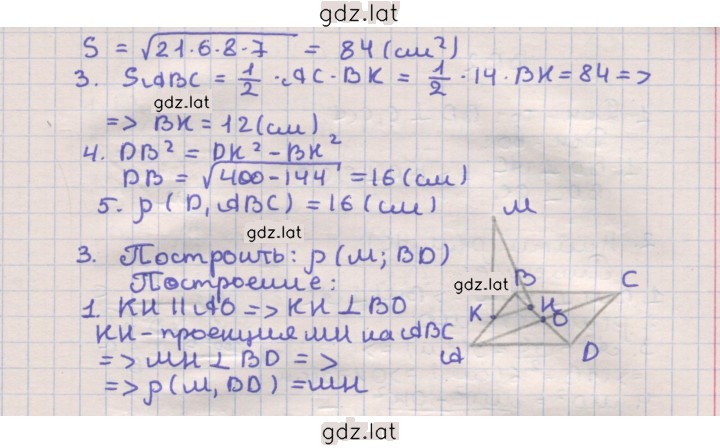 gdz.lat
S = √21·6·8·7 = 84(см²)
3. SABC = 1/2 · AC · BK = 1/2 · 14 · BK = 84 =>
gdz.lat
=> BK = 12(см)
4. DB² = DK² - BK²
DB = √400-144 = 16(см)
5. ρ(D, ABC) = 16(см)
gdz.lat
3. Построить: ρ(M; BD)
Построение:
1. KH || AO => KH ⊥ BD
KH - проекция MH на ABC
=> MH ⊥ BD =>
=> ρ(M, BD) = MH
M
gdz.lat
B
C
K
H
O
A
D
gdz.lat